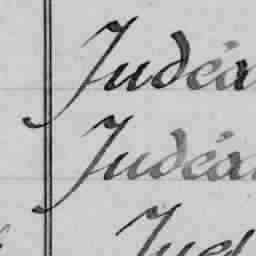 Judéa
Judéa